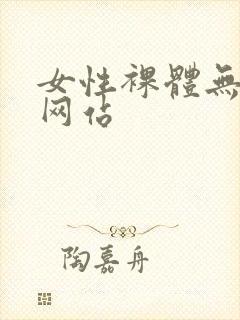 女性裸體無
网站
陶嘉舟